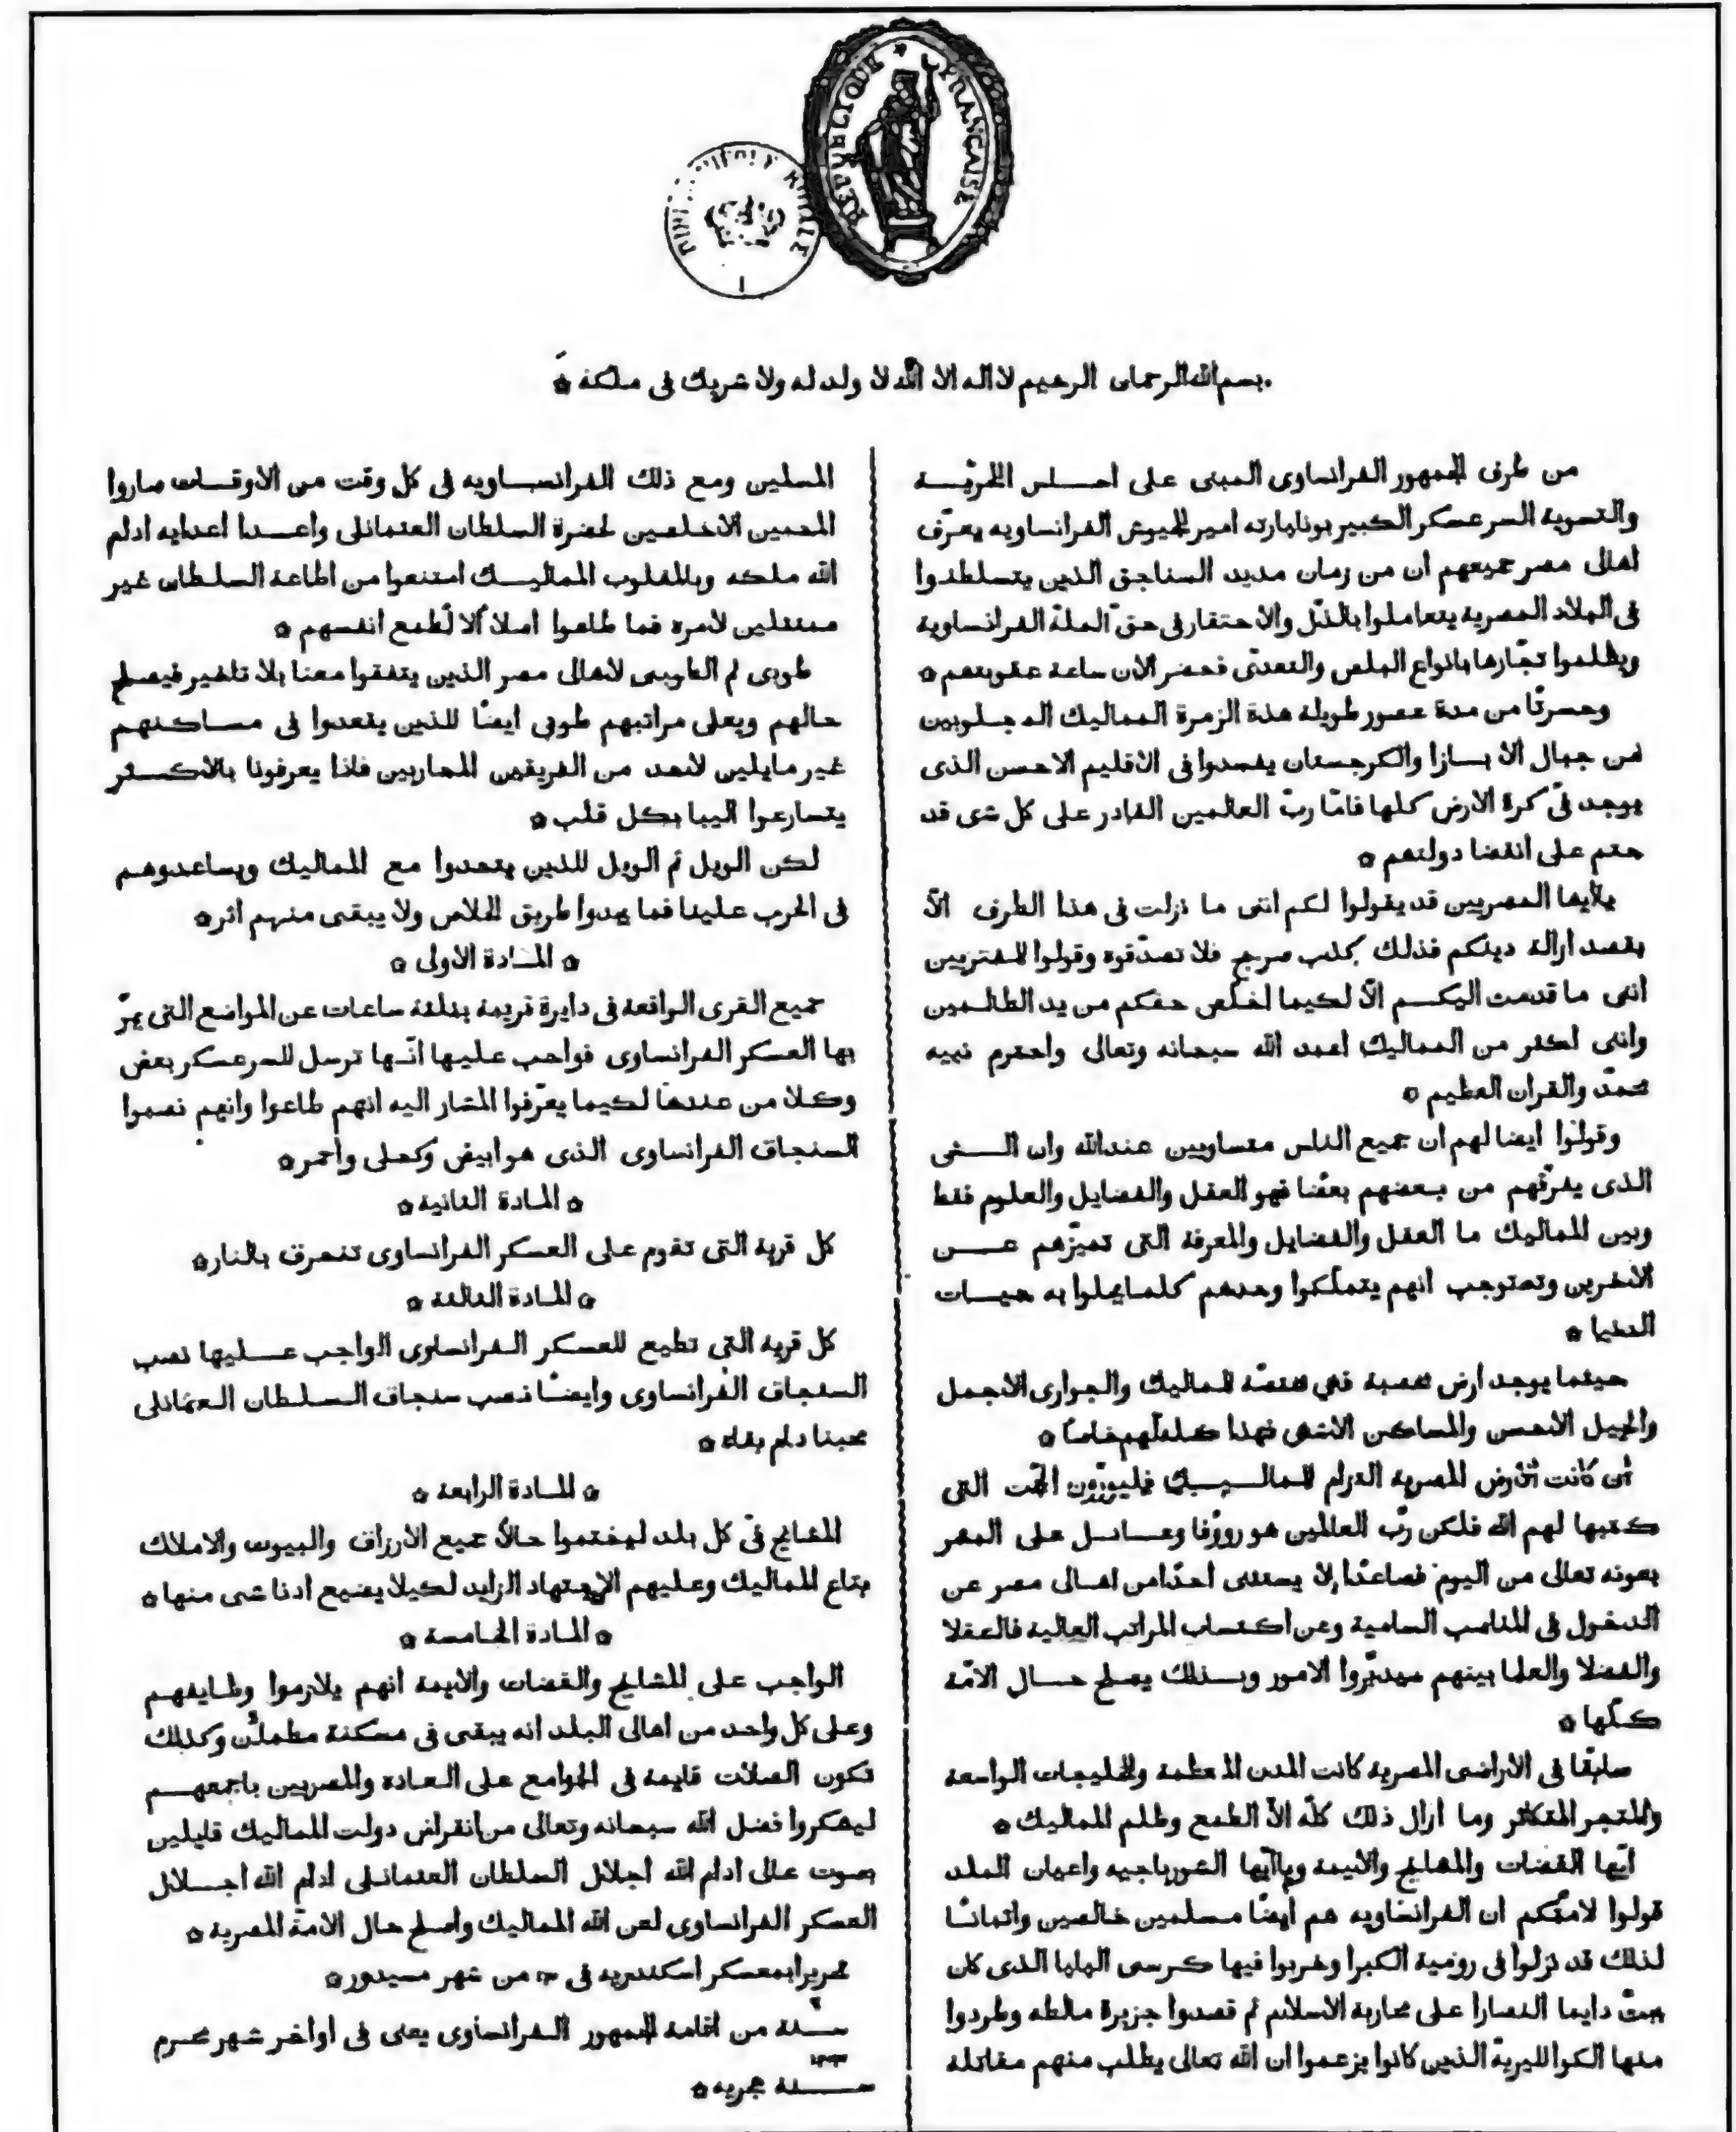 REPUBLIQUE ★ FRANCAISE
بسم الله الرحمان الرحيم لا اله الا الله لا ولد له ولا شريك فى ملكة
من طرف الجمهور الفرانساوى المبنى على اساس الحرّيّة
والتسوية السر عسكر الكبير بونابارته امير الجيوش الفرانساويه يعرّف
اهالى مصر جميعهم ان من زمان مديد السناجق الذين يتسلطنوا
فى البلاد المصرية يتعاملوا بالذلّ والاحتقار فى حقّ الملة الفرانساوية
ويظلموا تجّارها بانواع البلص والتعدّى فحضر الان ساعة عقوبتهم
وحسرتا من مدة عصور طويلة هذة الزمرة المماليك المجلوبين
من جبال الابازا والكرجستان يفسدوا فى الاقليم الاحسن الذى
يوجد فى كرة الارض كلها فامّا ربّ العالمين القادر على كل شى قد
حتم على انقضا دولتهم
يا ايها المصريين قد يقولوا لكم اننى ما نزلت فى هذا الطرف الّا
بقصد ازالة دينكم فذلك كذب صريح فلا تصدّقوه وقولوا للمفتريين
اننى ما قدمت اليكم الّا لكيما اخلّص حقكم من يد الظالمين
واننى اكثر من المماليك اعبد الله سبحانه وتعالى واحترم نبيه
محمّد والقران العظيم
وقولوا ايضا لهم ان جميع الناس متساويين عند الله وان الشى
الذى يفرّقهم من بعضهم بعضا فهو العقل والفضايل والعلوم فقط
وبين المماليك ما العقل والفضايل والمعرفة التى تميّزهم عن
الاخرين وتستوجب انهم يتملّكوا وحدهم كلما يحلوا به حيات
الدنيا
حيثما يوجد ارض خصبة فهى مختصّة للماليك والجوارى الاجمل
والخيل الاحسن والمساكن الاشهى فهذا كله لهم خاصاً
ان كانت الارض المصرية التزام للمماليك فليورّون الحجّت التى
كتبها لهم الله فلكن ربّ العالمين هو رووفا وعادل على البشر
بعونه تعالى من اليوم فصاعدًا لا يستثنى احدًا من اهالى مصر عن
الدخول فى المناصب السامية وعن اكتساب المراتب العالية فالعقلا
والفضلا والعلما بينهم سيدبّروا الامور وبذلك يصلح حال الامّة
كلّها
سابقًا فى الاراضى المصرية كانت المدن المعظمة والخليجات الواسعة
والمتجر المتكاثر وما ازال ذلك كلّه الّا الطمع وظلم المماليك
ايّها القضات والمشايخ والايمة ويا ايّها الشورباجيه واعيان البلد
قولوا لامّتكم ان الفرانساويه هم ايضًا مسلمين خالصين واثباتًا
لذلك قد نزلوا فى رومية الكبرا وخربوا فيها كرسى البابا الذى كان
يحثّ دايما النصارا على محاربة الاسلام ثم قصدوا جزيرة مالطه وطردوا
منها الكواللیرية الذين كانوا يزعموا ان الله تعالى يطلب منهم مقاتلة
المسلمين ومع ذلك الفرانساويه فى كل وقت من الاوقات صاروا
المحبين الاخلصين لحضرة السلطان العثمانلى واعدا اعدايه ادام
الله ملكه وبالمقلوب المماليك امتنعوا من اطاعة السلطان غير
ممتثلين لامره فما طاعوا اصلا الّا لطمع انفسهم
طوبى ثم الطوبى لاهالى مصر الذين يتفقوا معنا بلا تاخير فيصلح
حالهم ويعلى مراتبهم طوبى ايضًا للذين يقعدوا فى مساكنهم
غير مايلين لاحد من الفريقين المحاربين فاذا يعرفونا بالاكثر
يتسارعوا الينا بكل قلب
لكن الويل ثم الويل للذين يتحدوا مع المماليك ويساعدوهم
فى الحرب علينا فما يجدوا طريق الخلاص ولا يبقى منهم اثر
المادة الاولى
جميع القرى الواقعة فى دايرة قريبة بثلثة ساعات عن المواضع التى يمرّ
بها العسكر الفرانساوى فواجب عليها انّها ترسل للسر عسكر بعض
وكلا من عندها لكيما يعرّفوا المشار اليه انهم طاعوا وانهم نصبوا
السنجاق الفرانساوى الذى هو ابيض وكحلى واحمر
المادة الثانية
كل قرية التى تقوم على العسكر الفرانساوى تنحرق بالنار
المادة الثالثة
كل قرية التى تطيع للعسكر الفرانساوى الواجب عليها نصب
السنجاق الفرانساوى وايضًا نصب سنجاق السلطان العثمانلى
محبنا دام بقاه
المادة الرابعة
المشايخ فى كل بلد ليختموا حالاً جميع الارزاق والبيوت والاملاك
بتاع المماليك وعليهم الاجتهاد الزايد لكيلا يضيع ادنا شى منها
المادة الخامسة
الواجب على المشايخ والقضات والايمة انهم يلازموا وظايفهم
وعلى كل واحد من اهالى البلد انه يبقى فى مسكنة مطمان وكذلك
تكون الصلات قايمة فى الجوامع على العادة والمصريين باجمعهم
ليشكروا فضل الله سبحانه وتعالى من انقراض دولت المماليك قايلين
بصوت عالى ادام الله اجلال السلطان العثمانلى ادام الله اجلال
العسكر الفرانساوى لعن الله المماليك واصلح حال الامة المصرية
تحريرا بمعسكر اسكندريه فى ١٣ من شهر مسيدور
سنة من اقامة الجمهور الفرانساوى يعنى فى اواخر شهر محرم
سنة ١٢١٣ هجريه